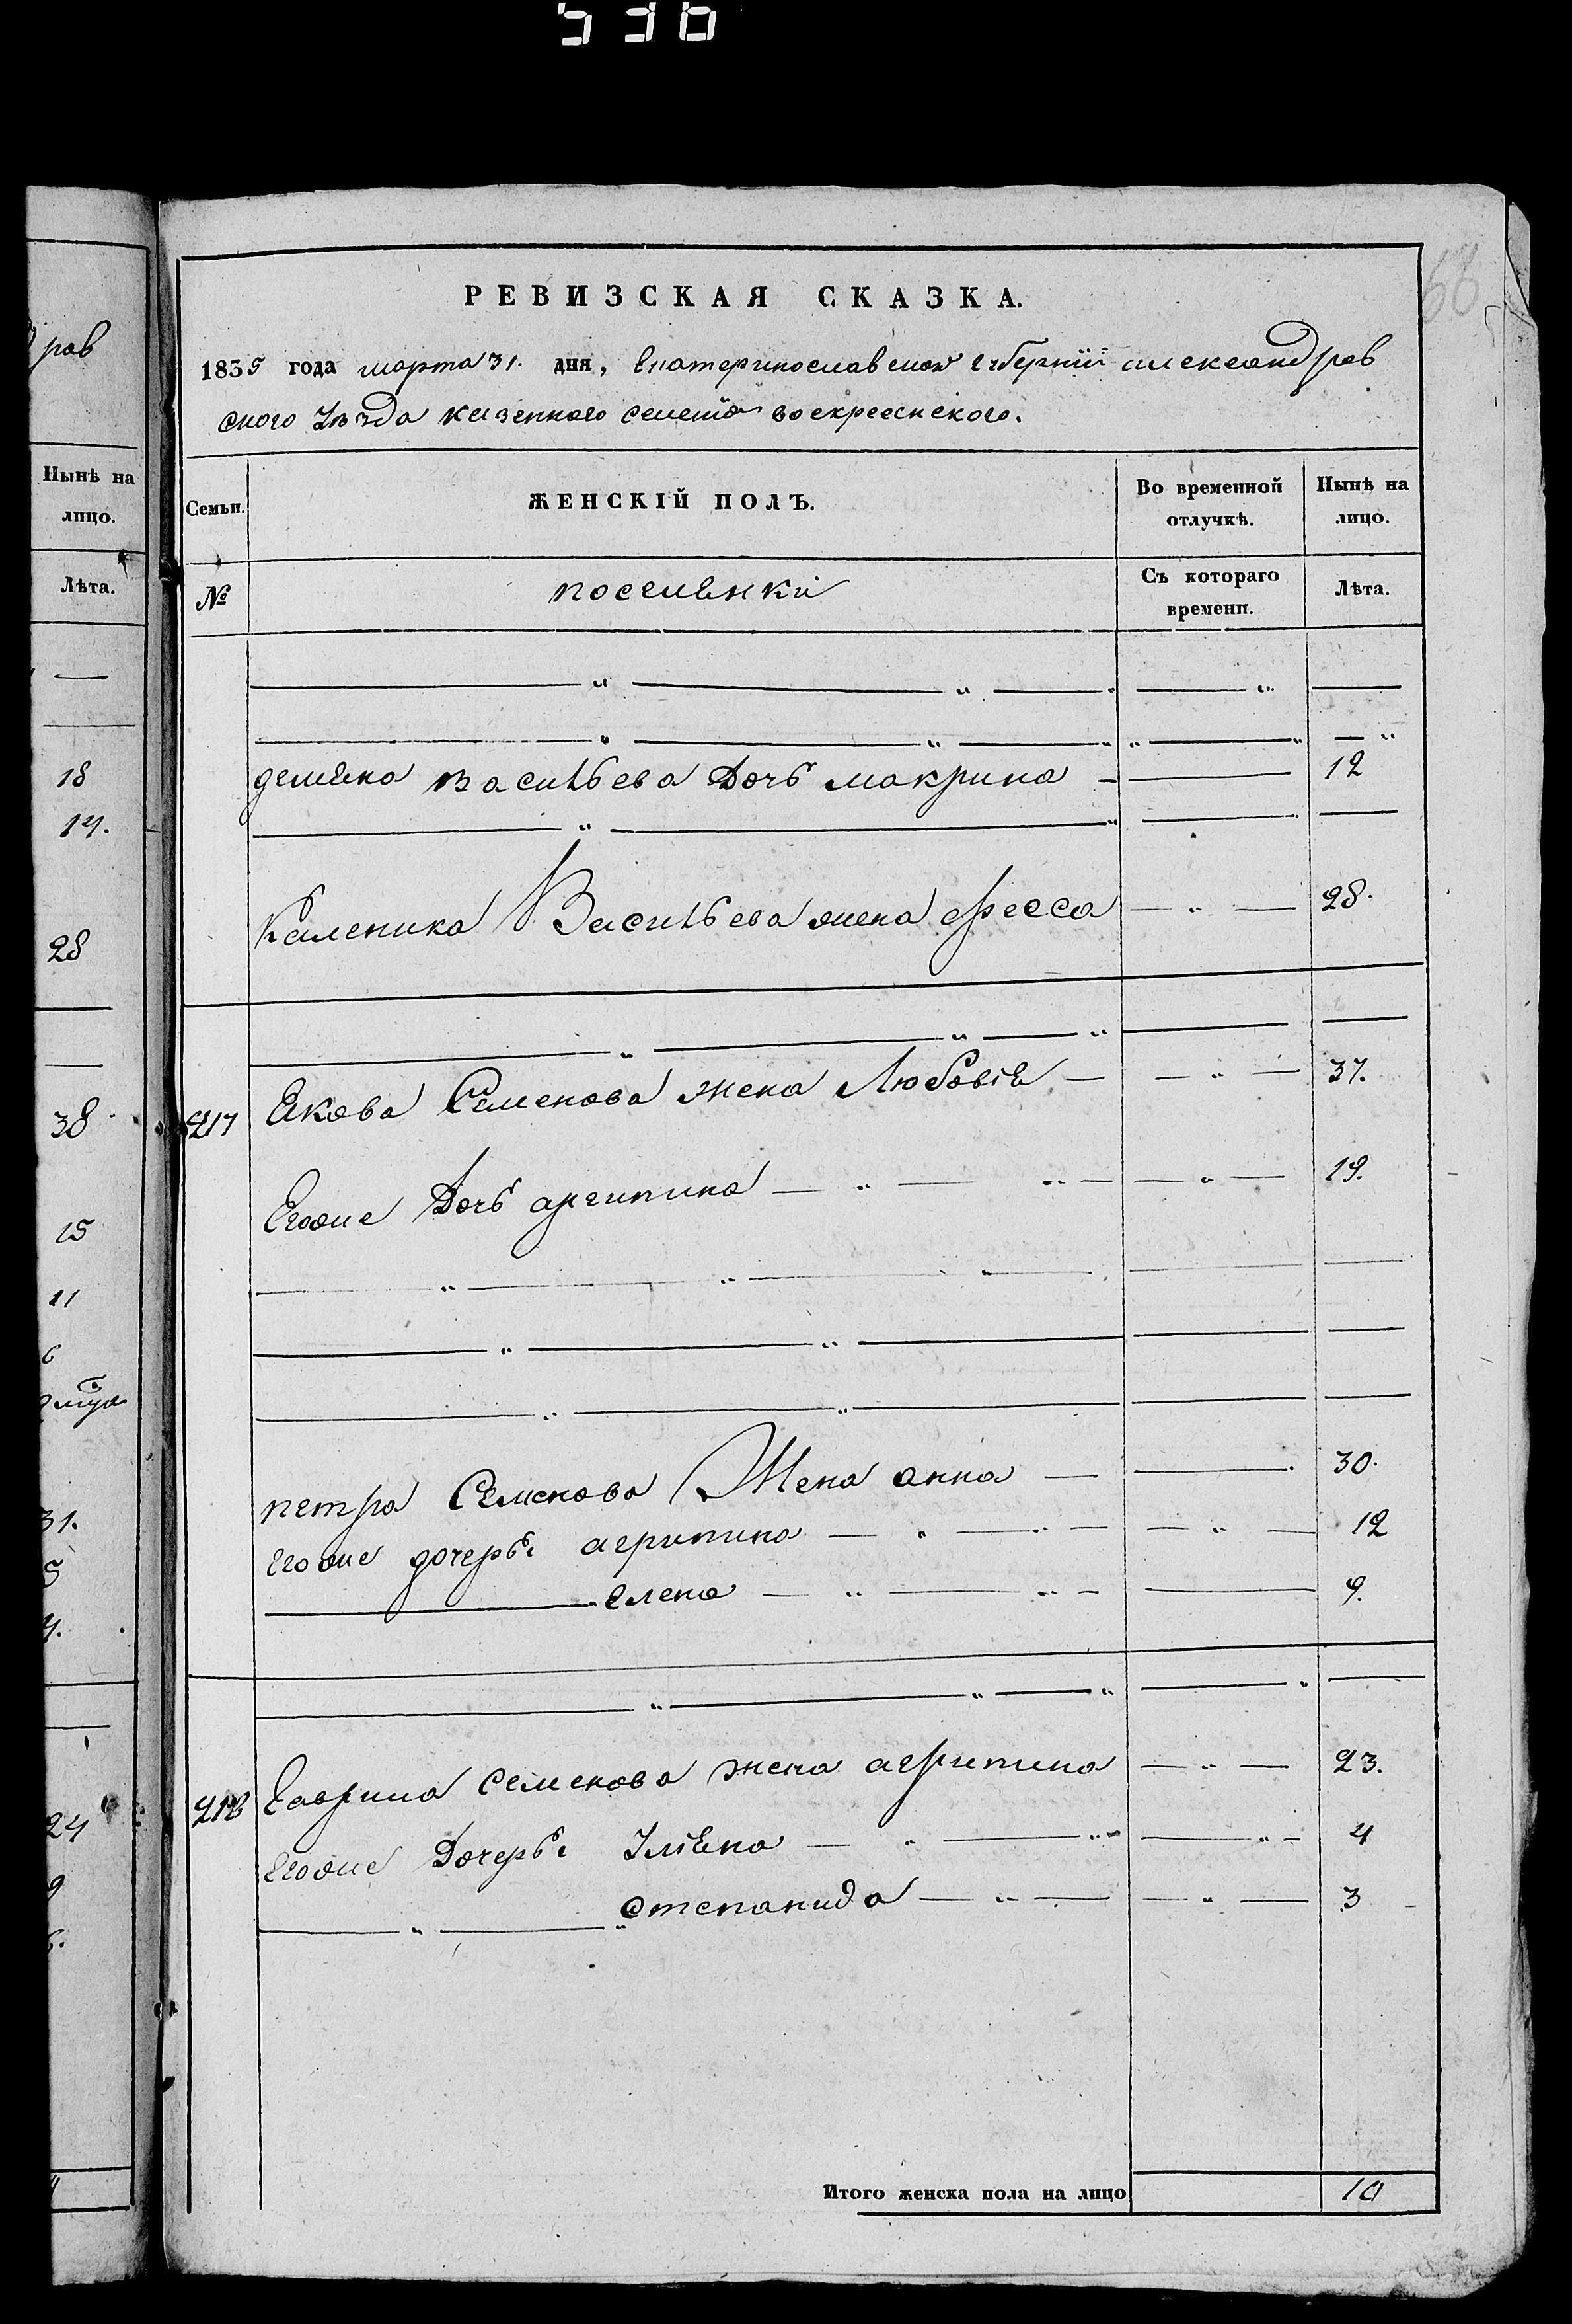 536
68
РЕВИЗСКАЯ СКАЗКА.
1835 года марта 31. дня, Екатеринославской Губернiи александров
ского Уезда казенного селенiя воскресенского.
Семьи.
ЖЕНСКІЙ ПОЛЪ.
Во временной отлучкѣ.
Нынѣ на лицо.
№
поселенки
Съ котораго времени.
Лѣта.
демяна Васильева Дочь макрина 12
Каленика Васильева жена 28.
217 Якова Семенова жена Любовiя 37.
Егоже Дочь 19.
петра Семенова Жена анна 30.
егоже дочерье агрипина 12
елена 9.
218 Гаврила Семенова жена агрипина 23.
егоже Дочерье Улiяна 4
степанида 3
Итого женска пола на лицо 10
ров
Нынѣ на лицо.
Лѣта.
18
14.
28
38
15
11
6
31.
5
4.
24
9